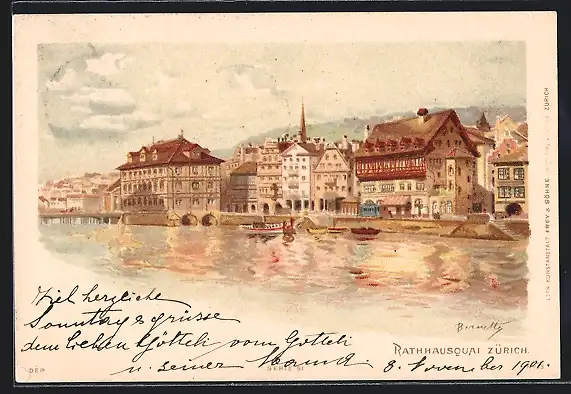 Viel herzliche
Sonntagsgrüsse
dem lieben Götteli vom Gotteli
u. seiner Mama. 3. November 1901.
RATHHAUSQUAI ZÜRICH.
DEP.
SERIE 51
LITH. KUNSTANSTALT FREY & SÖHNE ZÜRICH